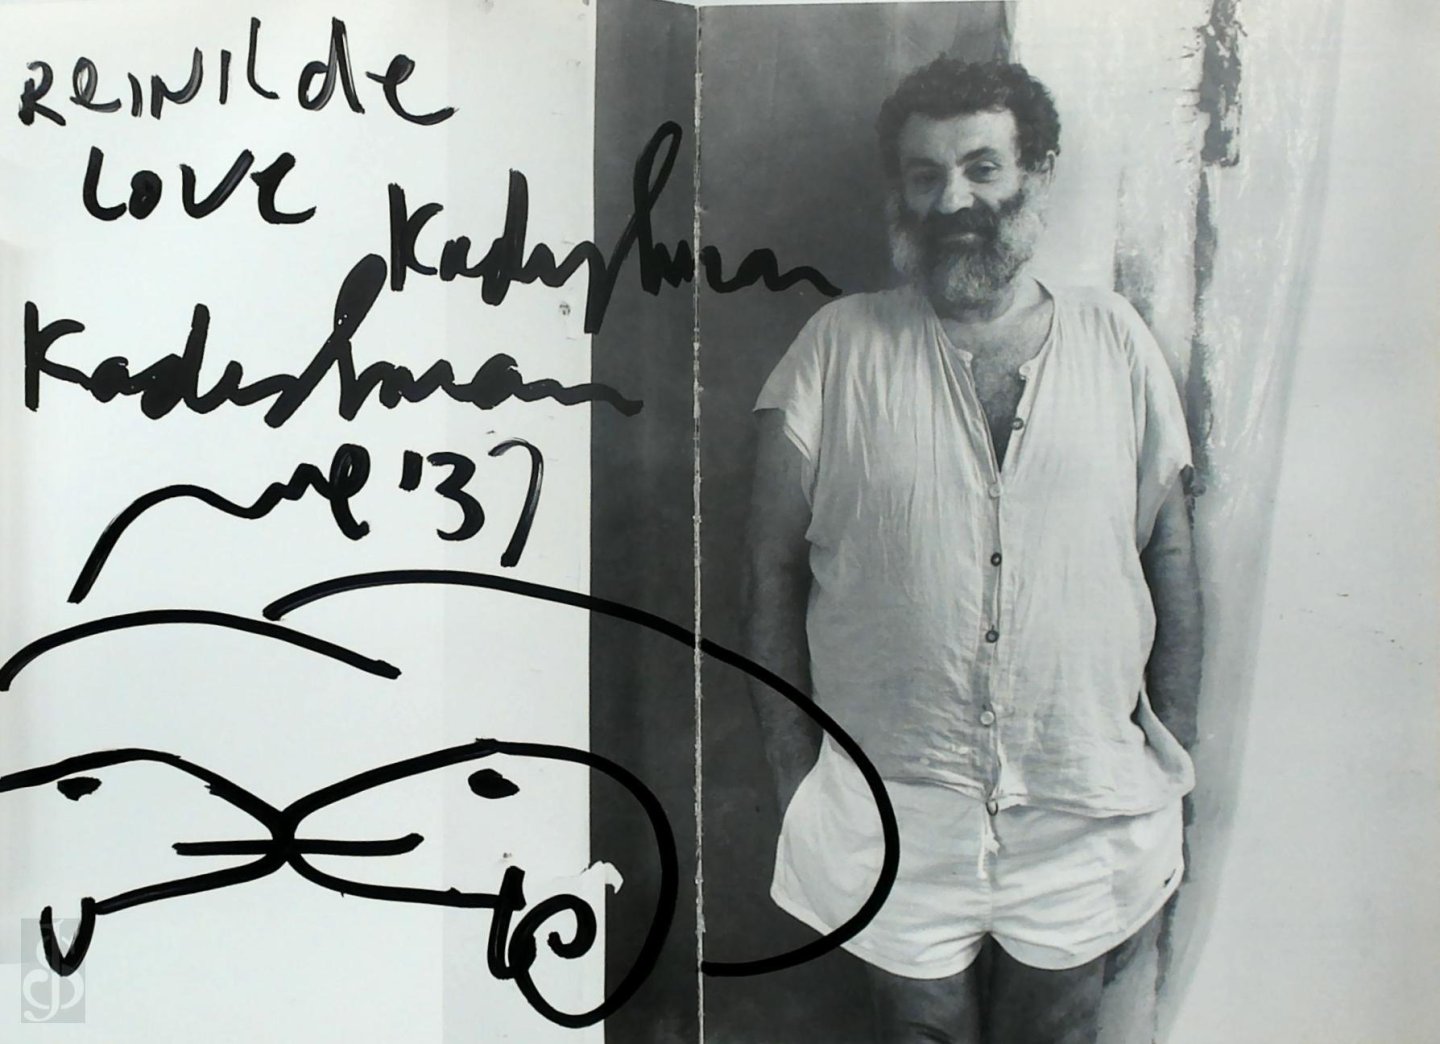 Reinilde
Love
Kadishman
Kadishman
'37